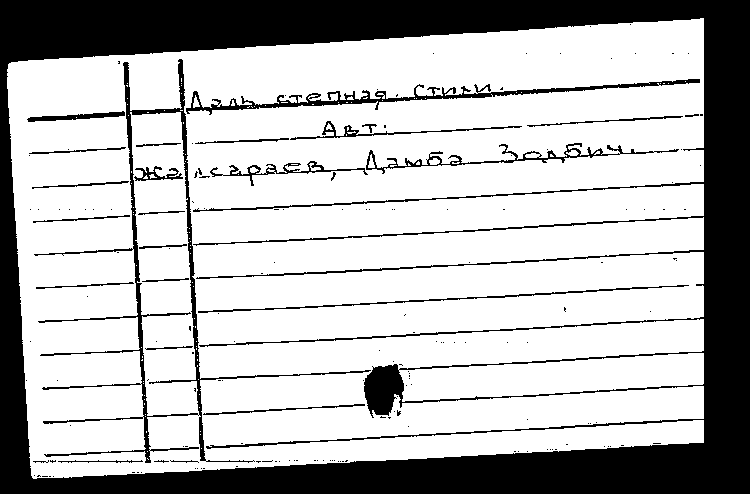 Даль степная. Стихи.
Авт:
Жалсараев, Дамба Зодбич.